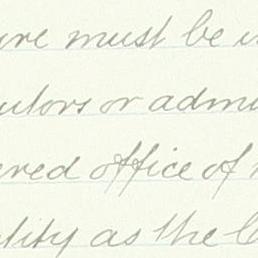 ure must be i
utors or admi
ered office of
ality as the C